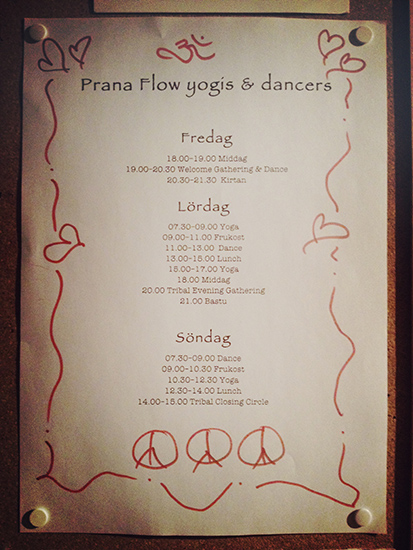 ॐ
Prana Flow yogis & dancers
Fredag
18.00-19.00 Middag
19.00-20.30 Welcome Gathering & Dance
20.30-21.30 Kirtan
Lördag
07.30-09.00 Yoga
09.00-11.00 Frukost
11.00-13.00 Dance
13.00-15.00 Lunch
15.00-17.00 Yoga
18.00 Middag
20.00 Tribal Evening Gathering
21.00 Bastu
Söndag
07.30-09.00 Dance
09.00-10.30 Frukost
10.30-12.30 Yoga
12.30-14.00 Lunch
14.00-15.00 Tribal Closing Circle